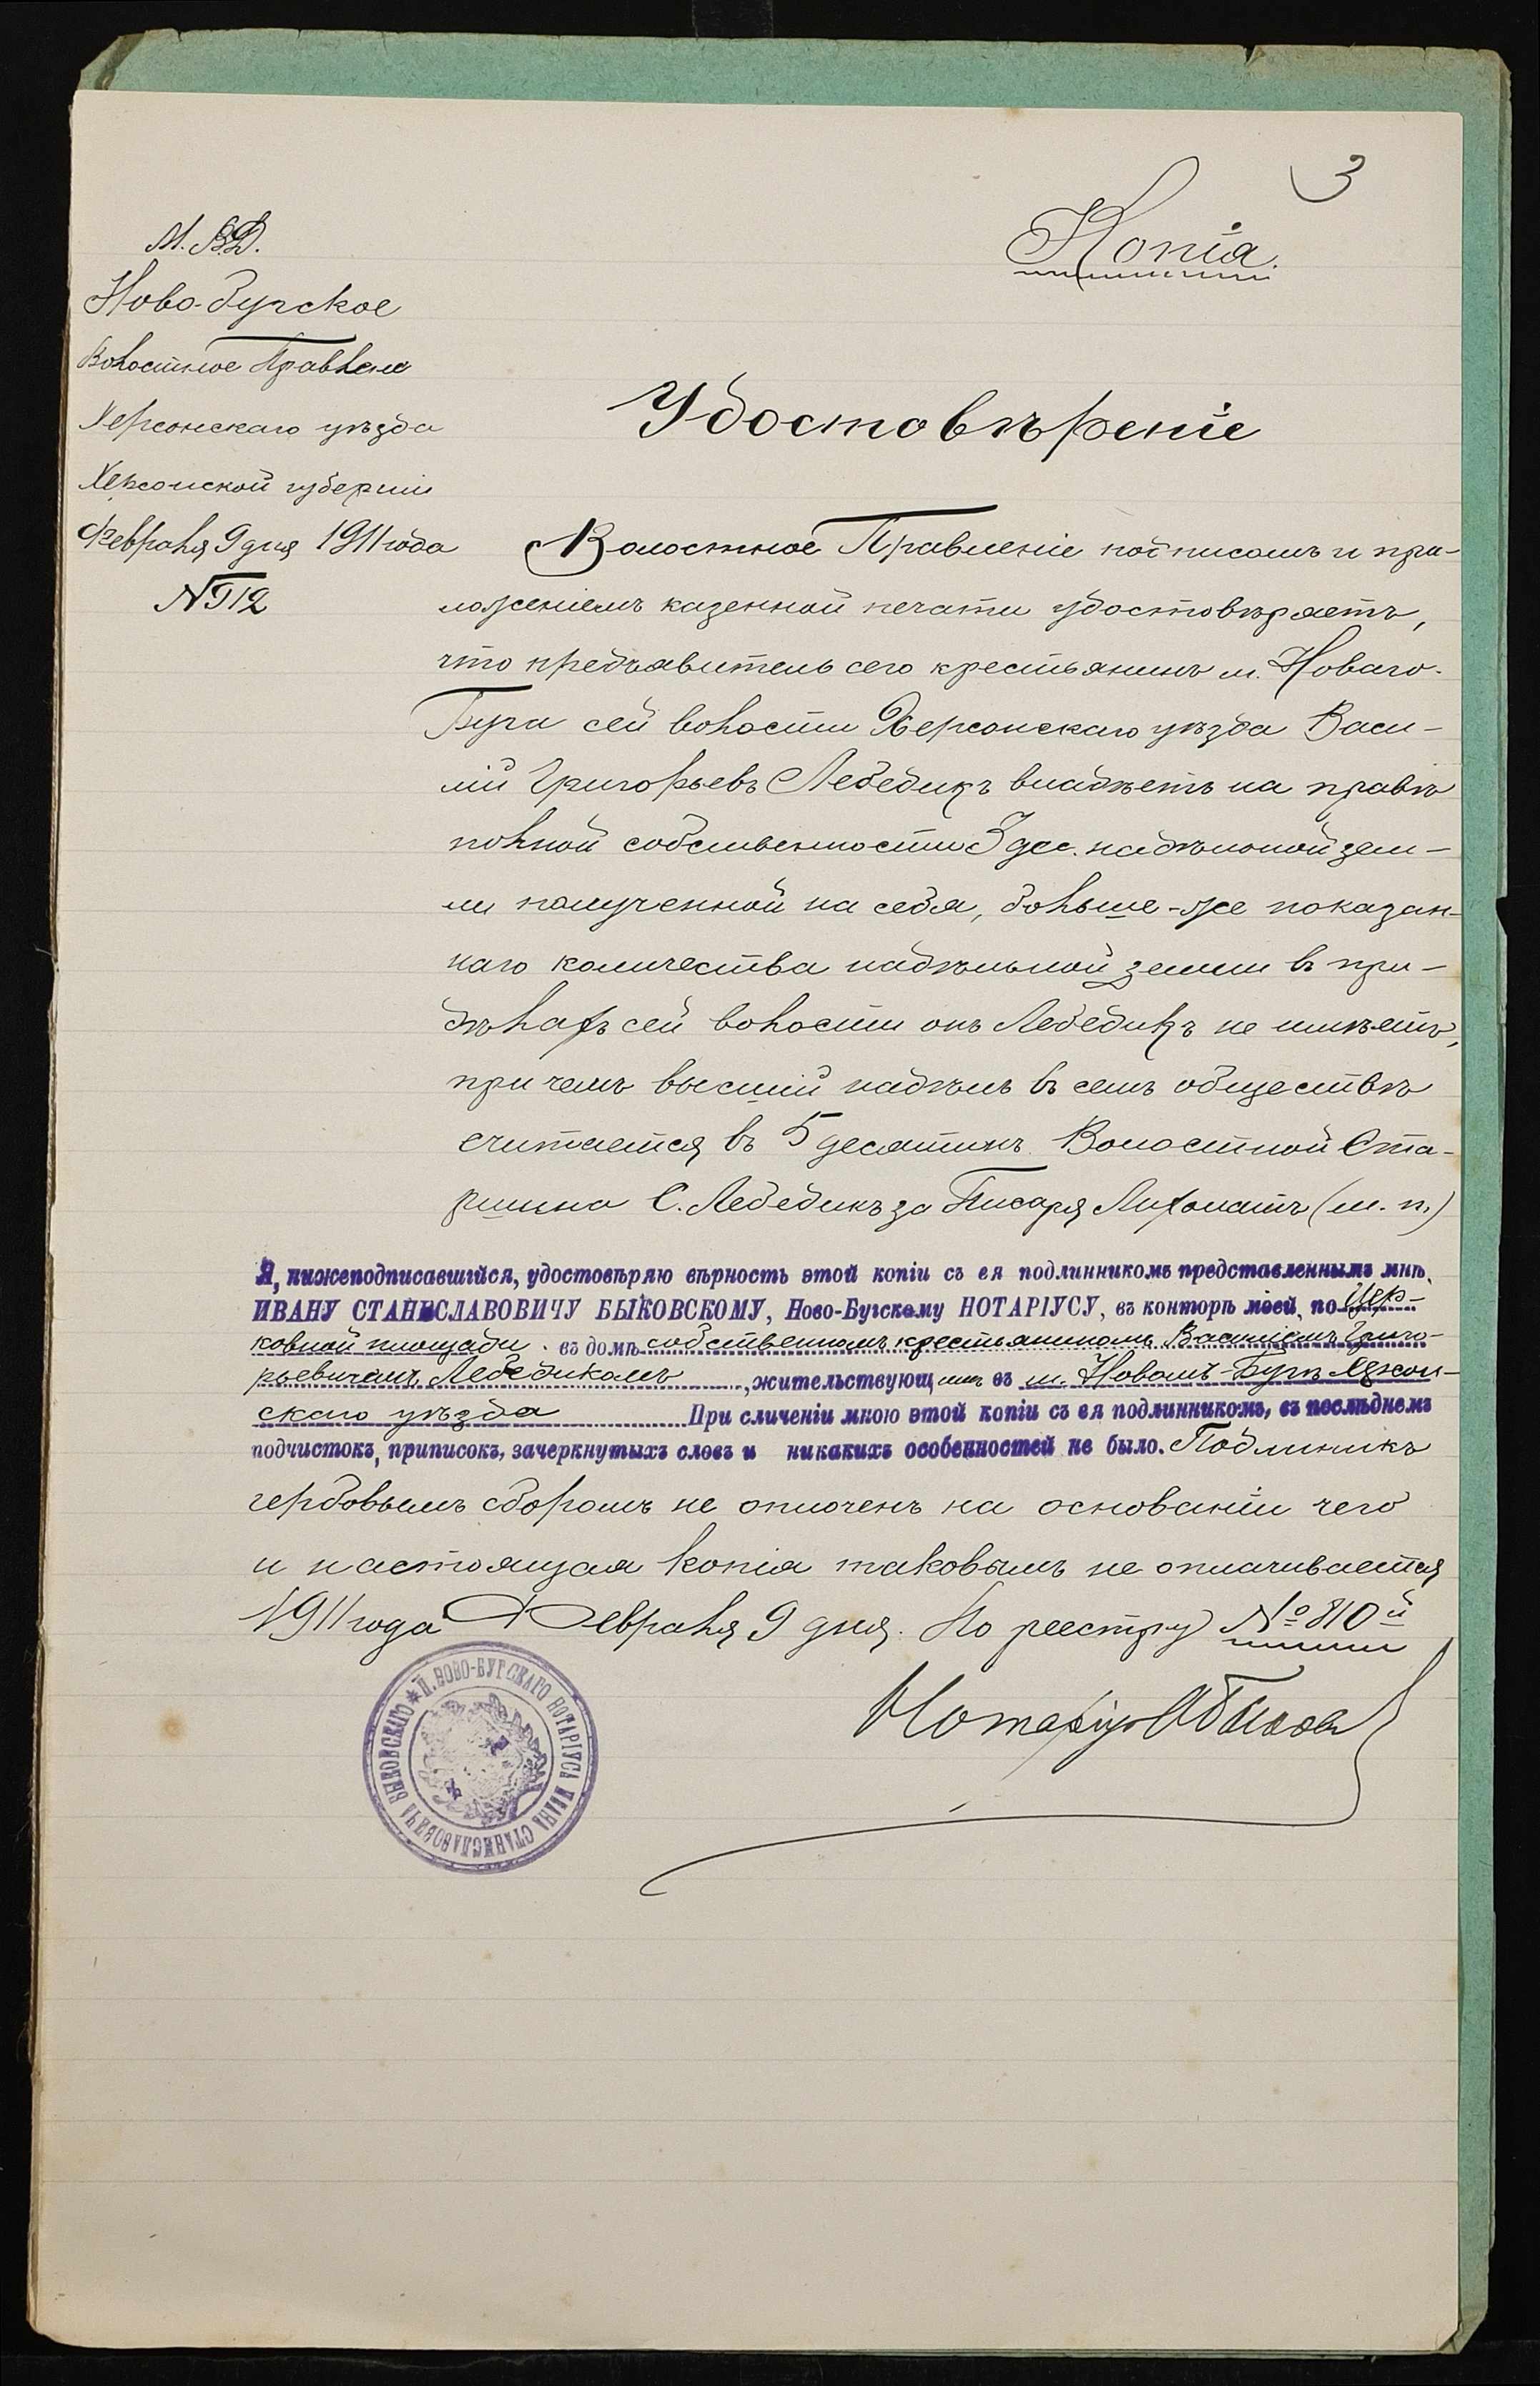 3
Копія.
М. В. Д.
Ново-Бугское
Волостное Правленіе
Херсонскаго уѣзда
Херсонской губерніи
Февраля 9 дня 1911 года
№ 912
Удостовѣреніе
Волостное Правленіе подписомъ и при-
ложеніемъ казенной печати удостовѣряетъ,
что предъявитель сего крестьянинъ м. Новаго-
Буга сей волости Херсонскаго уѣзда Васи-
лій Григорьевъ Лебедикъ владѣетъ на правѣ
полной собственности 3 дес. надѣльной зем-
ли полученной на себя, больше-же показан-
наго количества надѣльной земли въ пре-
дѣлахъ сей волости онъ Лебедикъ не имѣетъ,
при чемъ высшій надѣлъ въ семъ обществѣ
считается въ 5 десятинъ. Волостной Ста-
ршина С. Лебедикъ за Писаря (м. п.)
Я, нижеподписавшійся, удостовѣряю вѣрность этой копіи съ ея подлинникомъ представленнымъ мнѣ,
ИВАНУ СТАНИСЛАВОВИЧУ БЫКОВСКОМУ, Ново-Бугскому НОТАРІУСУ, въ конторѣ моей, по Цер-
ковной площади въ домѣ собственномъ крестьяниномъ Василіемъ Григо-
рьевичемъ Лебедикомъ, жительствующимъ въ м. Новомъ-Бугѣ Херсон-
скаго уѣзда При сличеніи мною этой копіи съ ея подлинникомъ, въ послѣднемъ
подчистокъ, приписокъ, зачеркнутыхъ словъ и никакихъ особенностей не было. Подлинникъ
гербовымъ сборомъ не оплоченъ на основаніи чего
и настоящая копія таковымъ не оплачивается
1911 года Февраля 9 дня. По реестру № 810й
Нотаріусъ
Н. ВОВО-БУГСКАГО НОТАРІУСА ИВАНА СТАНИСЛАВОВИЧА БЫКОВСКАГО